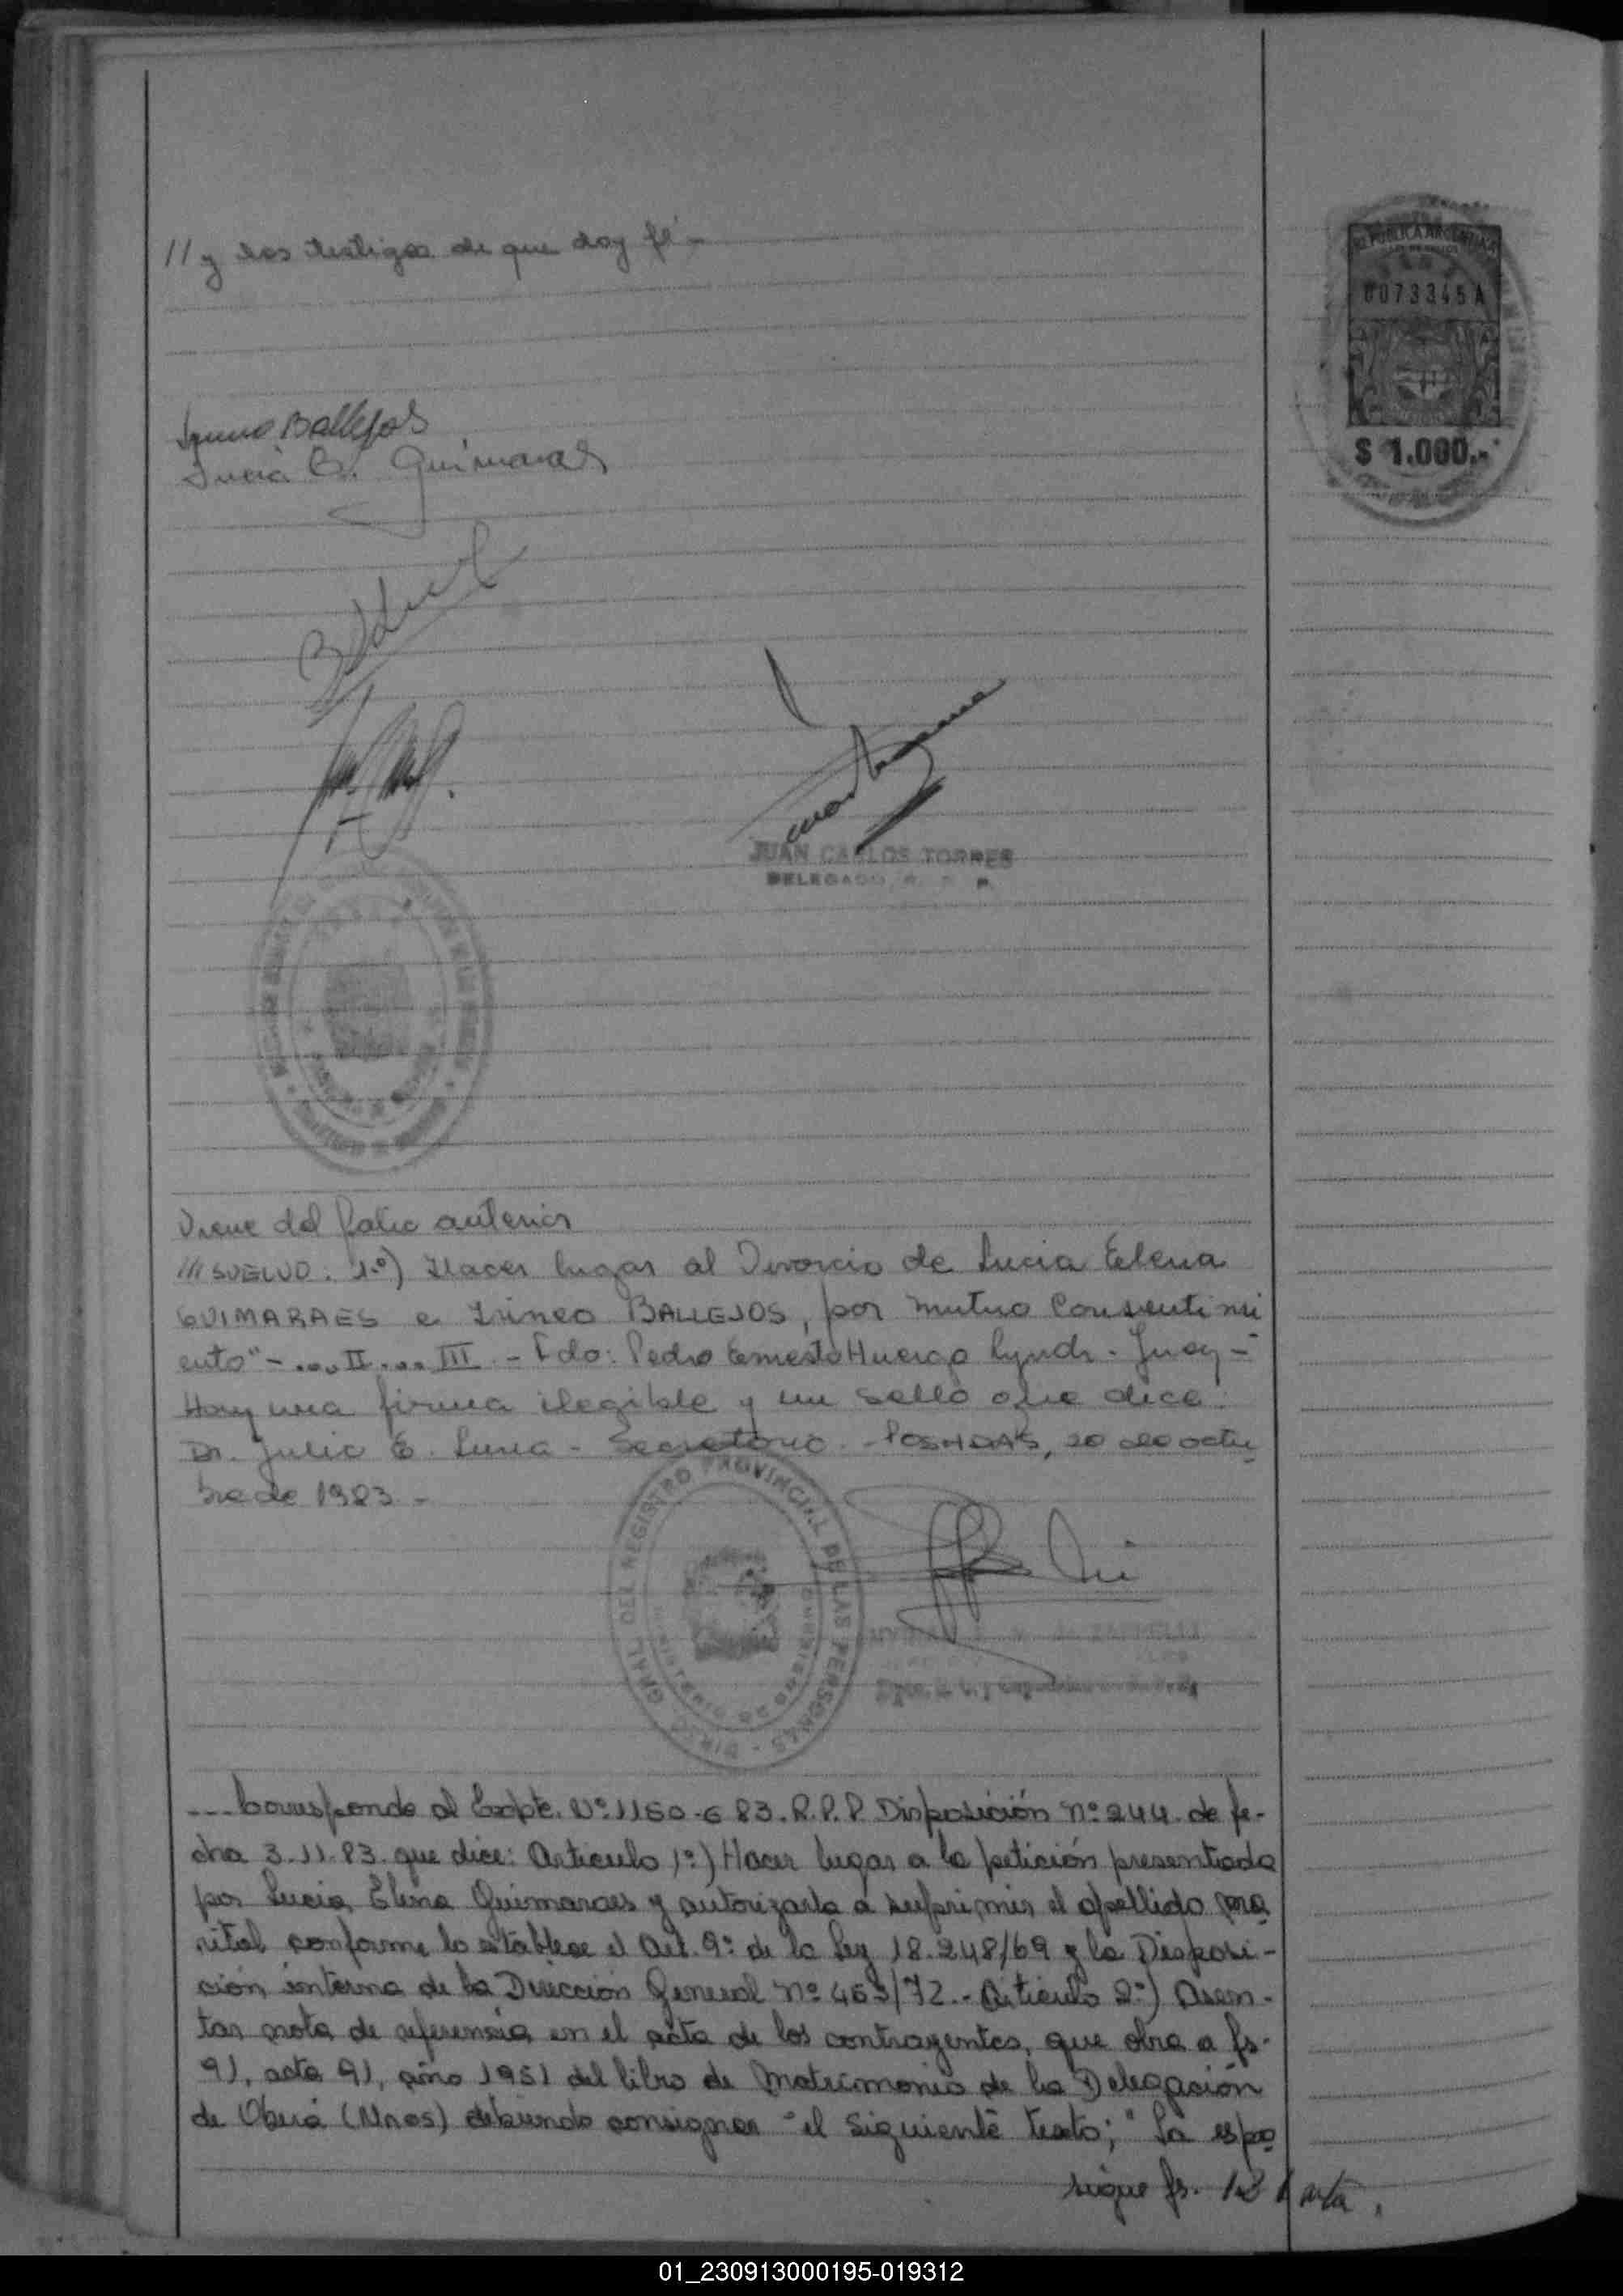 // y los testigos de que doy fé -
REPUBLICA ARGENTINA
0073345A
$ 1.000.-
Irineo Ballejos
Lucia E. Guimaraes
JUAN CARLOS TORRES
DELEGADO R. P.
Viene del folio anterior
///SUELVO: 1º) Hacer lugar al Divorcio de Lucia Elena
GUIMARAES e Irineo BALLEJOS, por mutuo Consentimi
ento" - ... II ... III - Fdo: Pedro Ernesto Huergo Lynch - Juez -
Hay una firma ilegible y un sello que dice:
Dr. Julio E. Luna - Secretario - POSADAS, 20 de octu
bre de 1983 -
DIREC. GRAL. DEL REGISTRO PROVINCIAL DE LAS PERSONAS
--- Corresponde al Expte. Nº 1160-G 83. R.P.P. Disposición Nº 244 de fe-
cha 3.11.83 que dice: Articulo 1º) Hacer lugar a la petición presentada
por Lucia Elena Guimaraes y autorizarla a suprimir el apellido ma
rital conforme lo establece el Art. 9º de la Ley 18.248/69 y la Disposi-
ción interna de la Dirección General Nº 463/72.- Articulo 2º) Asen-
tar nota de referencia en el acta de los contrayentes, que obra a fs.
91, acta 91, año 1951 del libro de Matrimonio de la Delegación
de Oberá (Mnes) debiendo consignar el siguiente texto; "La espo
sigue fs. vta.
01_230913000195-019312